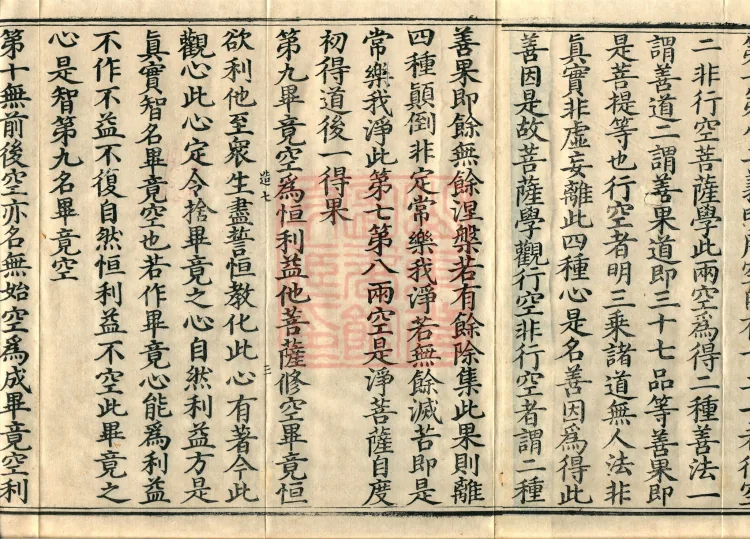 二非行空菩薩學此兩空為得二種善法一
謂善道二謂善果道即三十七品等善果即
是菩提等也行空者明三乘諸道無人法非
真實非虛妄離此四種心是名善因為得此
善因是故菩薩學觀行空非行空者謂二種
善果即餘無餘涅槃若有餘除集此果則離
四種顛倒非定常樂我淨若無餘滅苦即是
常樂我淨此第七第八兩空是淨菩薩自度
初得道後一得果
第九畢竟空為恒利益他菩薩脩空畢竟恒
造七 三
欲利他至眾生盡誓恒教化此心有著今此
觀心此心定令捨畢竟之心自然利益方是
真實智名畢竟空也若作畢竟心能為利益
不作不益不復自然恒利益不空此畢竟之
心是智第九名畢竟空
第十無前後空亦名無始空為成畢竟空利